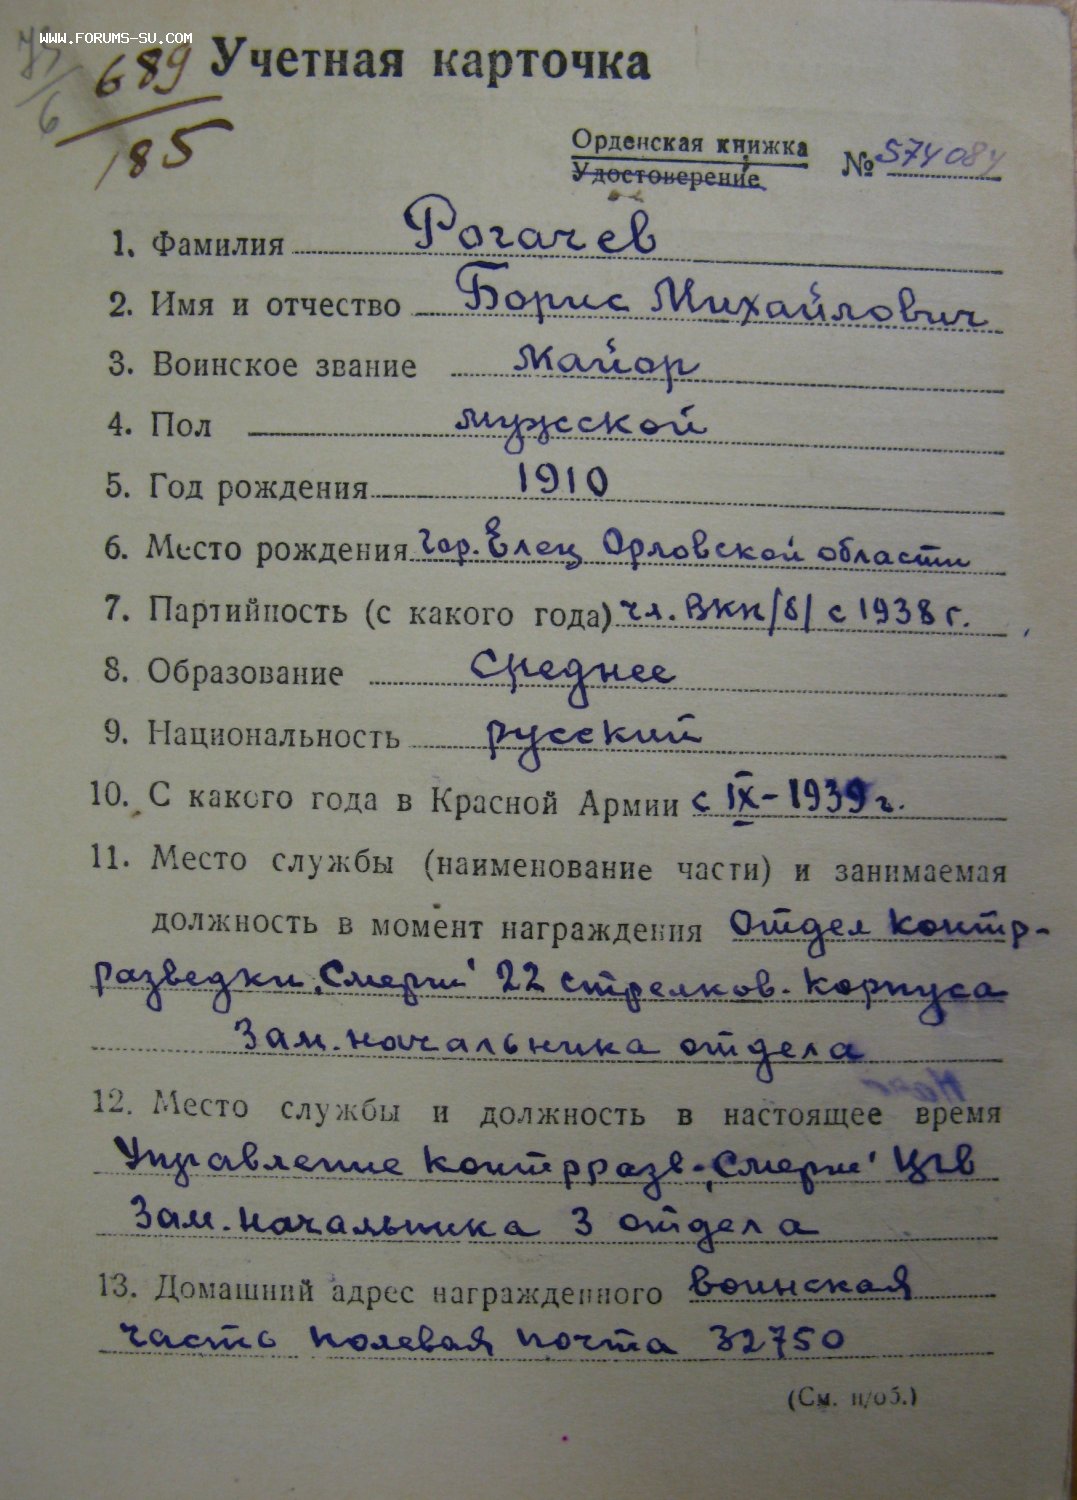 www.forums-su.com
689
185
Учетная карточка
Орденская книжка
Удостоверение
№ 574084
1. Фамилия Рогачев
2. Имя и отчество Борис Михайлович
3. Воинское звание майор
4. Пол мужской
5. Год рождения 1910
6. Место рождения гор. Елец Орловской области
7. Партийность (с какого года) чл. ВКП/б/ с 1938 г.
8. Образование среднее
9. Национальность русский
10. С какого года в Красной Армии с IX-1939 г.
11. Место службы (наименование части) и занимаемая
должность в момент награждения Отдел контр-
разведки „Смерш" 22 стрелков. корпуса
Зам. начальника отдела
12. Место службы и должность в настоящее время
Управление контрразв. „Смерш" ЦГВ
Зам. начальника 3 отдела
13. Домашний адрес награжденного воинская
часть полевая почта 32750
(См. н/об.)